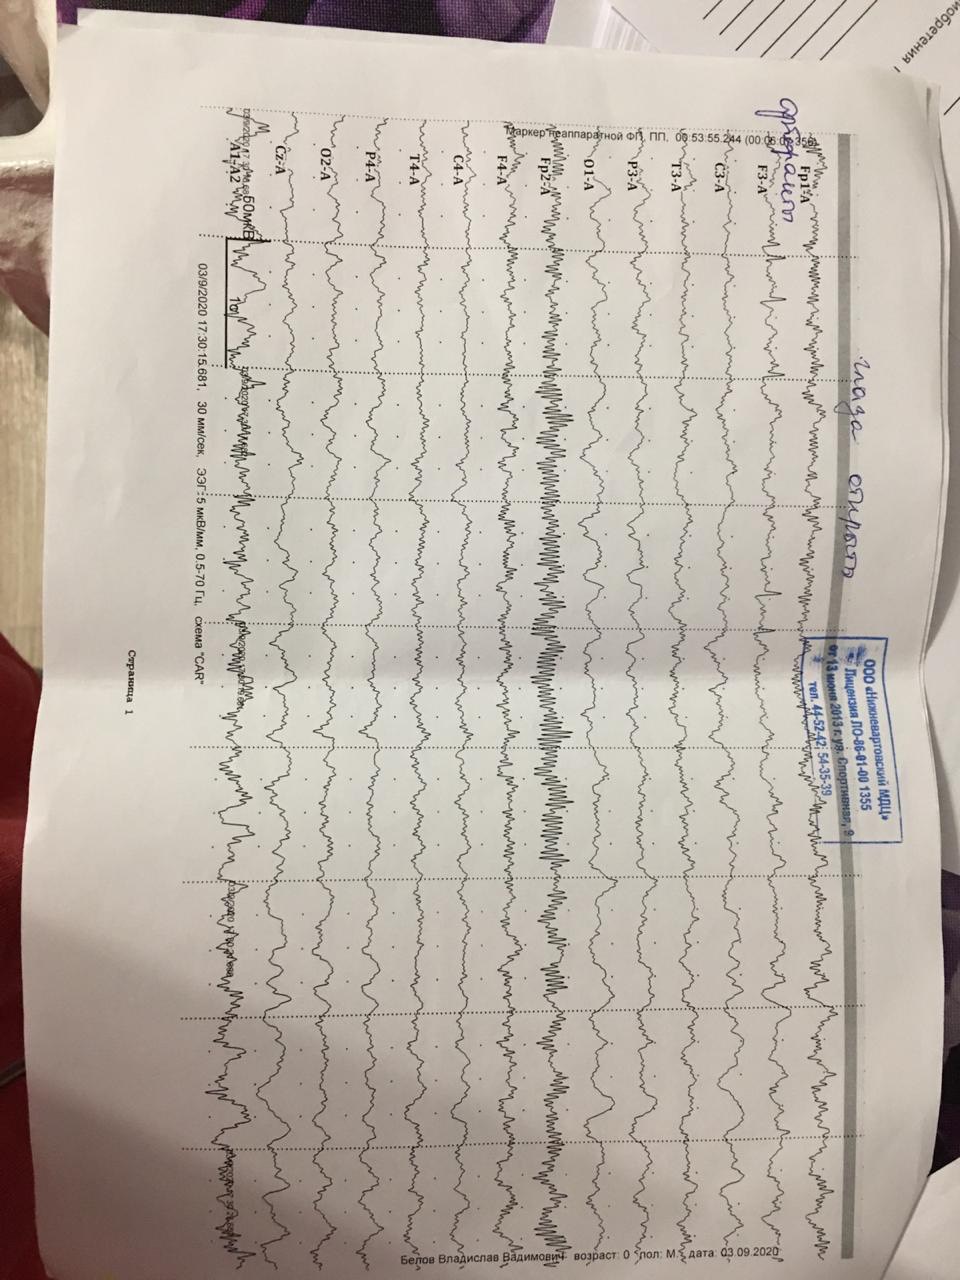 иобретения
Артефакты
глаза открыты
ООО «Нижневартовский МДЦ»
Лицензия ЛО-86-01-00 1355
от 13 июня 2013 г. ул. Спортивная, 9
тел. 44-52-42; 54-35-39
Маркер неаппаратной ФП, ПП, 06:53:55.244
Fp1-A
F3-A
C3-A
T3-A
P3-A
O1-A
Fp2-A
F4-A
C4-A
T4-A
P4-A
O2-A
Cz-A
A1-A2
50мкВ
1с
03/9/2020 17:30:15.681, 30 мм/сек, ЭЭГ: 5 мкВ/мм, 0.5-70 Гц, схема "CAR"
Страница 1
Белов Владислав Вадимович возраст: 0 пол: М. дата: 03.09.2020